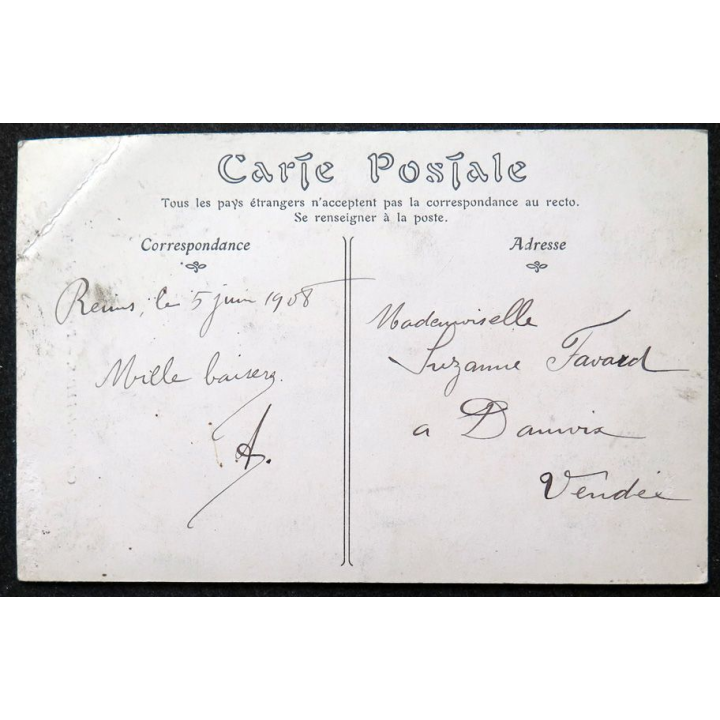 Carte Postale
Tous les pays étrangers n'acceptent pas la correspondance au recto.
Se renseigner à la poste.
Correspondance
Adresse
Reims, le 5 juin 1908
Mille baisers.
A.
Mademoiselle
Suzanne Favard
a Damvix
Vendée